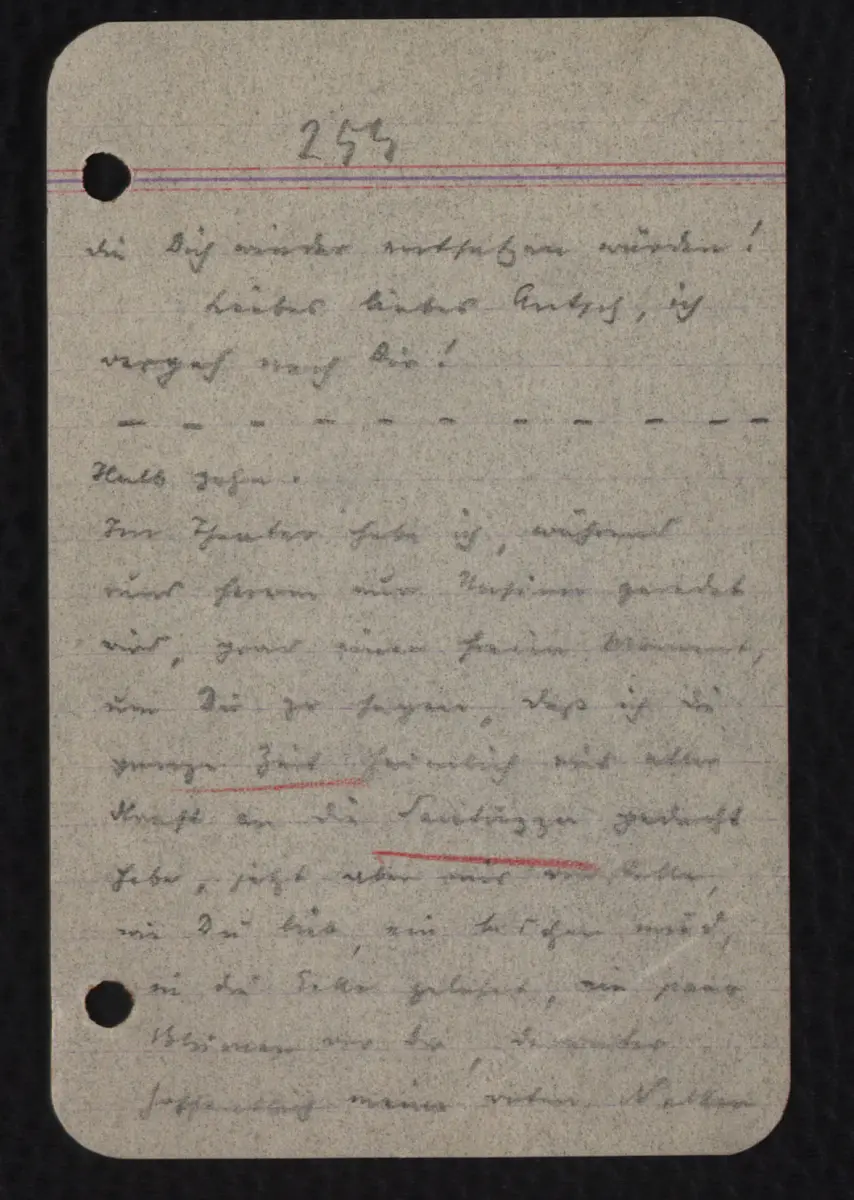 255
die Dich wieder entsetzen würden!
Liebes liebes Antsch, ich
vergeh nach Dir!
- - - - - - - - - -
Halb zehn.
Im Theater habe ich, während
rund herum nur Unsinn geredet
wird, grad einen freien Moment,
um Dir zu sagen, daß ich die
ganze Zeit heimlich mit aller
Kraft an die Santuzza gedacht
habe, jetzt aber mir vorstelle,
wie Du lieb, ein bischen müd,
in die Ecke gelehnt, ein paar
Blumen vor Dir, darunter
hoffentlich meine roten Nelken